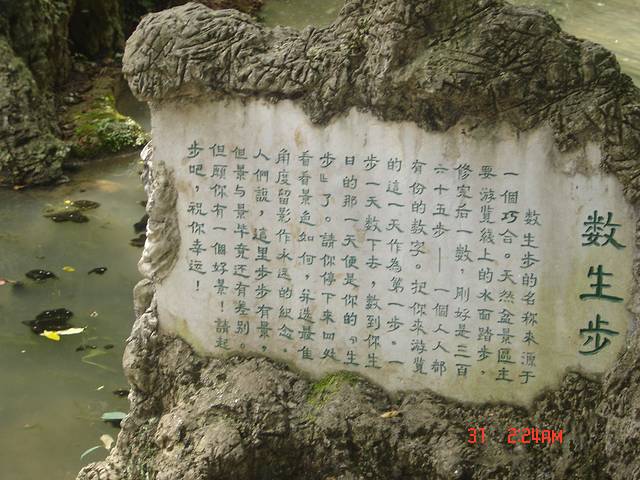 数生步
数生步的名称来源于
一個巧合。天然盆景區主
要游覧綫上的水面踏步，
修家后一數，刚好是三百
六十五步——一個人人都
有份的数字。把你来游覧
的這一天作為第一步。一
步一天数下去，數到你生
日的那一天便是你的『生
步』了。請你停下来四处
看看景色如何，并选最佳
角度留影作永远的紀念。
人們說，這里步步有景，
但景与景毕竟还有差别。
但願你有一個好景！請起
步吧，祝你幸运！
37 2:24AM